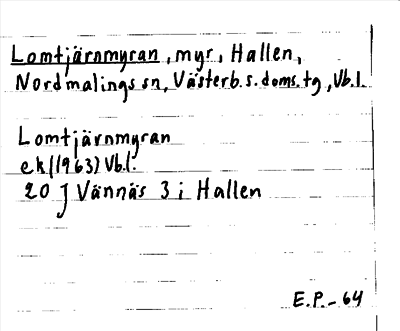 Lomtjärnmyran, myr, Hallen,
Nordmalings sn, Västerb. s. doms. tg, Vb.l.
Lomtjärnmyran
ek (1963) Vb.l.
20 J Vännäs 3 i Hallen
E.P. - 64